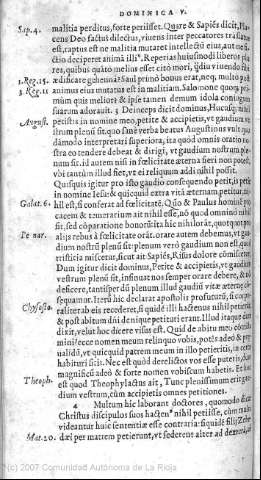 DOMINICA V.
Sap. 4. malitia perditus, forte periisset. Quare & Sapiēs dicit, Placens Deo factus dilectus, viuens inter peccatores trāslatus
est, raptus est ne malitia mutaret intellectū eius, aut ne fictio deciperet animā illi⁹. Reperias huiusmodi liberos
res, quibus quāto melius esset citò mori, q̃ diu viuendo
1. Reg. 15. ædificare gehennā? Saul primò bonus erat, neq;
3. Reg. 11 animus eius mutatus est in malitiam. Salomone quoq;
mùm quis meliore & ipse tamen demum idola coniugum
suarum adorauit. 3 Deinceps dicit dominus, Hucusq;
August. petistis in nomine meo, petite & accipietis, vt gaudium
vestrum plenū sit. quo sanè verba beatus Augustinus
dāmodo interpretatur superiora, ita quod omnis oratio nostra eo tendere debeat & dirigi, vt gaudium nostrum
num sit. id autem nisi in fœlicitate æterna fieri non potest,
vbi tantùm illud fiet, vt ei reliquum addi nihil possit.
Quisquis igitur pro isto gaudio consequendo petit, is petit
in nomine Iesu: & quicquid extra vitā æternam petitur,
Galat. 6. hil est, si conferat ad fœlicitatē. Quo & Paulus hominē
cacem & temerarium ait nihil esse, nō quod omnino nihil
sit, sed cōparatione bonorū sit hic nihil
Pe nar. alijs rebus à fœlicitate orāt. orare autem debemus, vt gaudium nostrū plenū sit: plenum verò gaudium non est,
tristicia miscetur, sicut ait Sapiēs, Risus dolore cōmiscetur.
Dum igitur dicit dominus, Petite & accipietis, vt gaudium
vestrum plenū sit, insinuat nos semper orare debere, &
deficere, tantisper dū plenum illud gaudiū vitæ æternæ
sequamur. Iterū hic declarat apostolis profuturū, si
Chrysosto. raliter ab eis recederet, si quidē illi hactenus nihil petierāt
& post abitum dñi denique petituri erant. Illud itaque eis
dixit, velut hoc dicere visus est. Quid de abitu meo
mini? ecce nomen meum relinquo vobis, potēs adeò &
ualidū, vt quicquid patrem meum in illo petieritis,
habituri sitis. Nec est quòd derelictos vos esse putetis,
magnificū adeò & forte nomen vobiscum habetis. Et
Theoph. est quod Theophylactus ait, Tunc plenissimum erit gaudium vestrum, cùm accipietis omnes petitiones.
4 Multum hic laborant doctores, quomodo dicat
Christus discipulos suos hacten⁹ nihil petiisse, cùm
videantur huic sententiæ esse contraria: siquidē filij Zebe-
Mat. 20. dæi per matrem petierunt, vt sederent alter ad dexteram
(c) 2007 Comunidad Autónoma de La Rioja